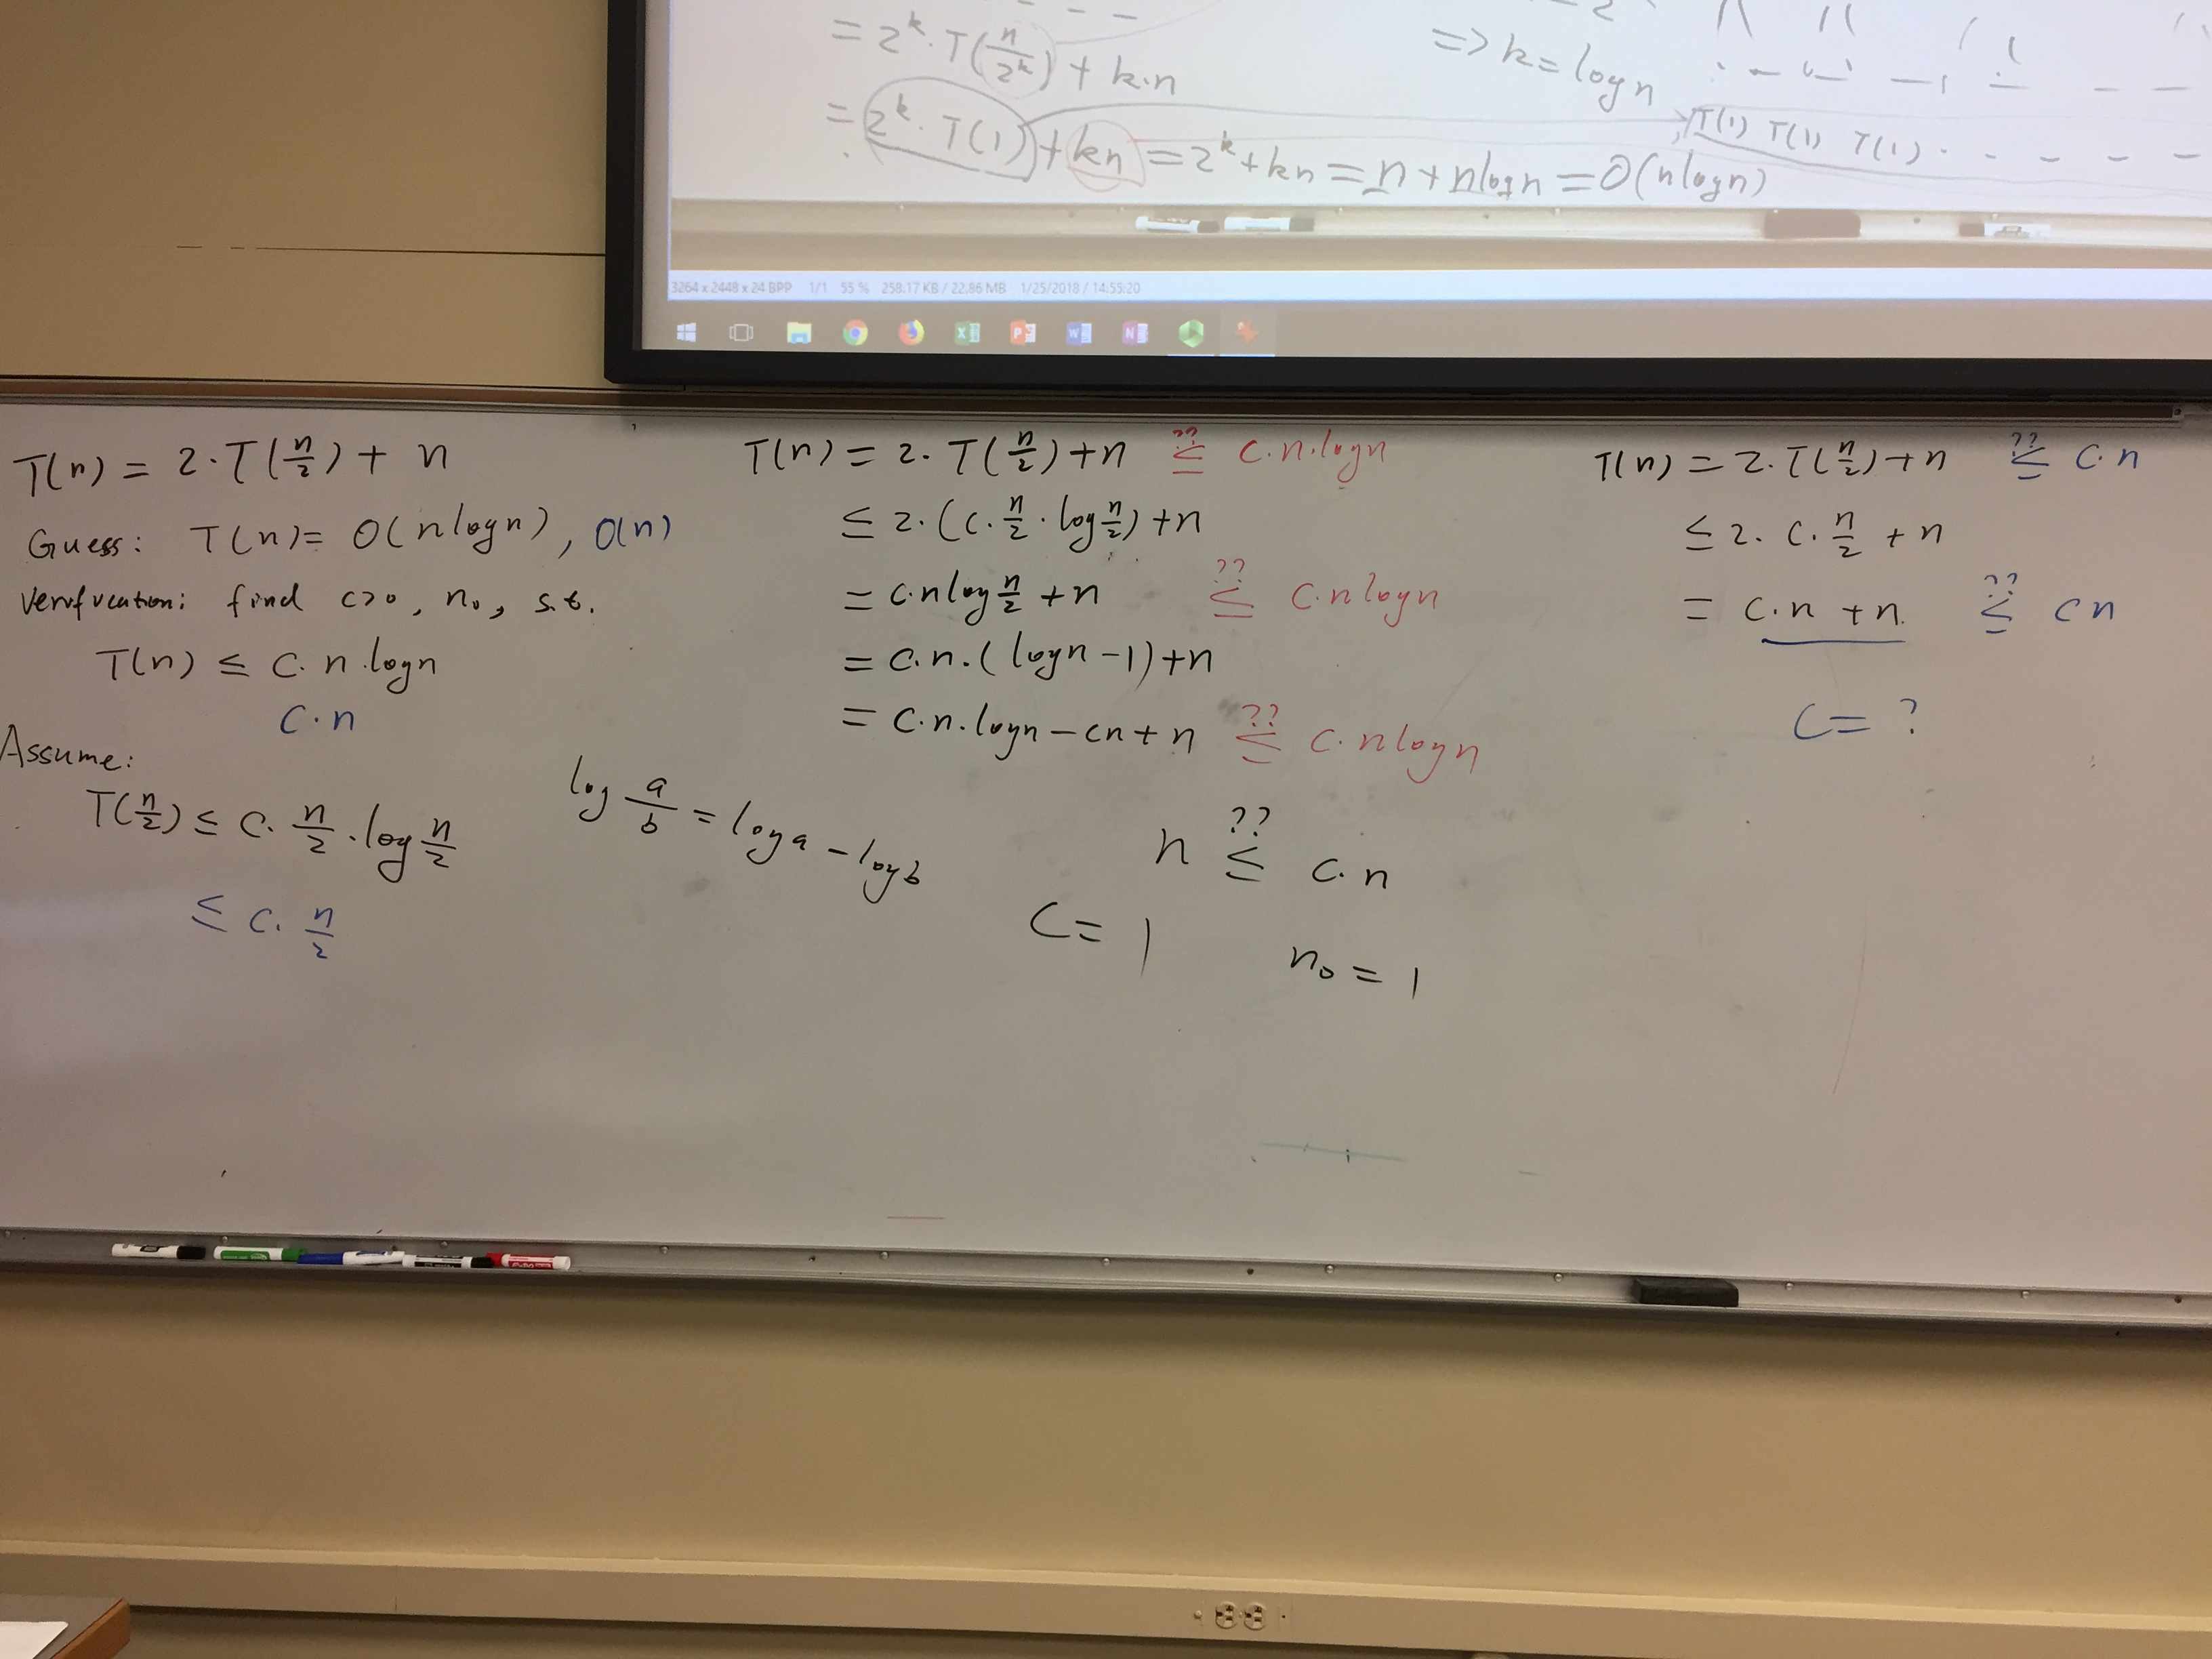 = 2^k · T(n/2^k) + k·n
=> k = log n
= 2^k · T(1) + kn = 2^k + kn = n + nlogn = O(nlogn)
T(1) T(1) T(1) · - - - -
3264 x 2448 x 24 BPP 1/1 55 % 258.17 KB / 22.86 MB 1/25/2018 / 14:55:20
T(n) = 2·T(n/2) + n
Guess: T(n) = O(nlogn), O(n)
Verification: find c>0, n₀, s.t.
T(n) ≤ c·n·logn
c·n
Assume:
T(n/2) ≤ c·n/2·log n/2
≤ c·n/2
log a/b = log a - log b
T(n) = 2·T(n/2) + n ≤?? c·n·logn
≤ 2·(c·n/2·log n/2) + n
= c·nlog n/2 + n ≤?? c·nlogn
= c·n·(logn - 1) + n
= c·n·logn - cn + n ≤?? c·nlogn
n ≤?? c·n
C = 1 n₀ = 1
T(n) = 2·T(n/2) + n ≤?? c·n
≤ 2·c·n/2 + n
= c·n + n ≤?? cn
C = ?